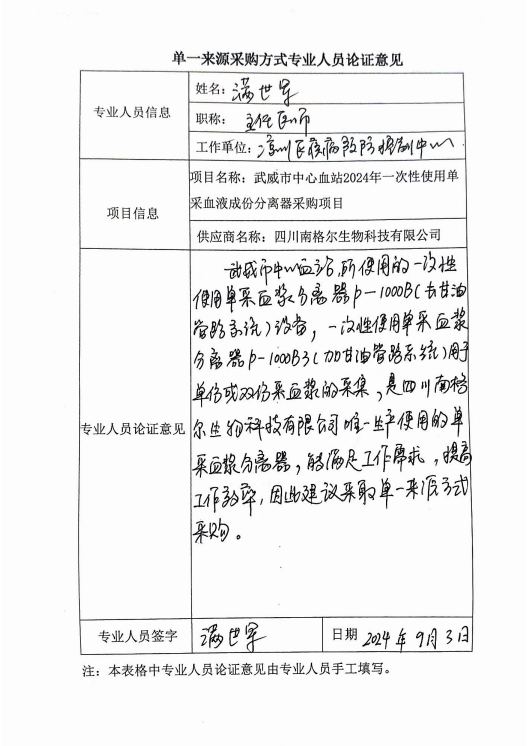 单一来源采购方式专业人员论证意见
专业人员信息
姓名：满世军
职称：主任医师
工作单位：凉州区疾病预防控制中心
项目信息
项目名称：武威市中心血站2024年一次性使用单
采血液成份分离器采购项目
供应商名称：四川南格尔生物科技有限公司
专业人员论证意见
武威市中心血站,所使用的一次性
使用单采血浆分离器P-1000B(去甘油
管路系统)设备，一次性使用单采血浆
分离器P-1000B3(加甘油管路系统)用于
单份或双份采血浆的采集，是四川南格
尔生物科技有限公司唯一生产使用的单
采血浆分离器，能满足工作需求，提高
工作效率，因此建议采取单一来源方式
采购。
专业人员签字
满世军
日期 2024年9月3日
注：本表格中专业人员论证意见由专业人员手工填写。